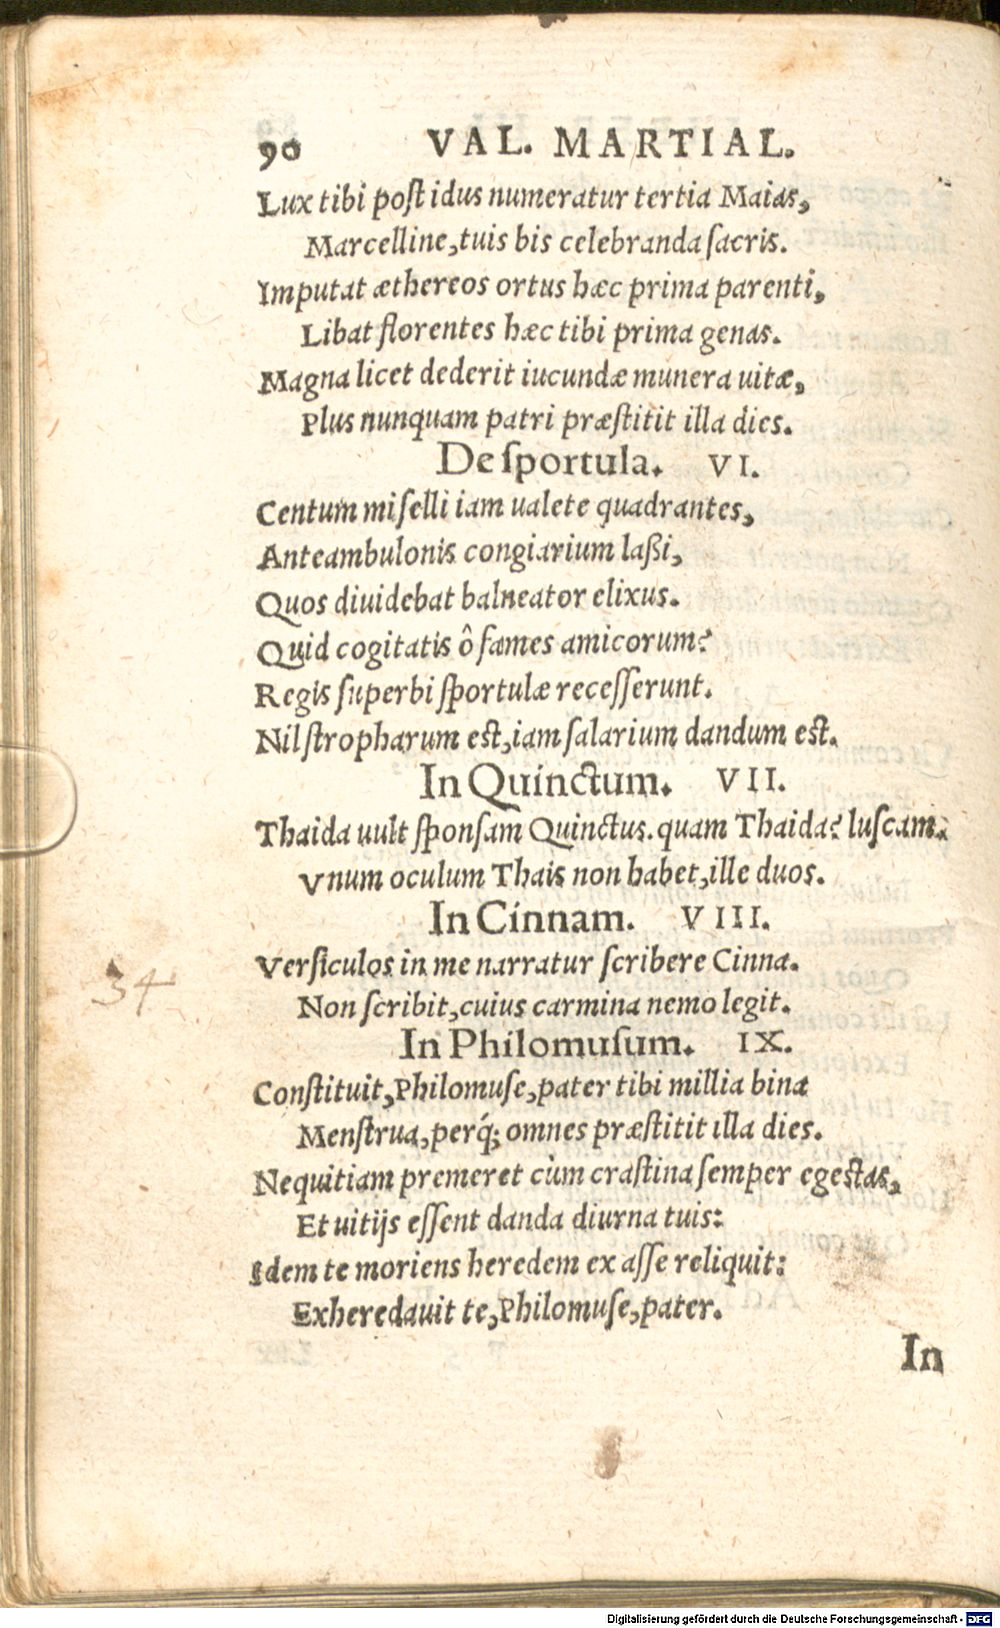 90 VAL. MARTIAL.
Lux tibi poſt idus numeratur tertia Maias,
Marcelline, tuis bis celebranda ſacris.
Imputat æthereos ortus hæc prima parenti,
Libat florentes hæc tibi prima genas.
Magna licet dederit iucundæ munera uitæ,
Plus nunquam patri præſtitit illa dies.
De ſportula. VI.
Centum miſelli iam ualete quadrantes,
Anteambulonis congiarium laßi,
Quos diuidebat balneator elixus.
Quid cogitatis ô fames amicorum?
Regis ſuperbi ſportulæ receſſerunt.
Nil ſtropharum eſt, iam ſalarium dandum eſt.
In Quinctum. VII.
Thaida uult ſponſam Quinctus. quam Thaida? luſcam.
Vnum oculum Thais non habet, ille duos.
In Cinnam. VIII.
Verſiculos in me narratur ſcribere Cinna.
34
Non ſcribit, cuius carmina nemo legit.
In Philomuſum. IX.
Conſtituit, Philomuſe, pater tibi millia bina
Menſtrua, perq́; omnes præſtitit illa dies.
Nequitiam premeret cùm craſtina ſemper egeſtas,
Et uitijs eſſent danda diurna tuis:
Idem te moriens heredem ex aſſe reliquit:
Exheredauit te, Philomuſe, pater.
In
Digitalisierung gefördert durch die Deutsche Forschungsgemeinschaft - DFG